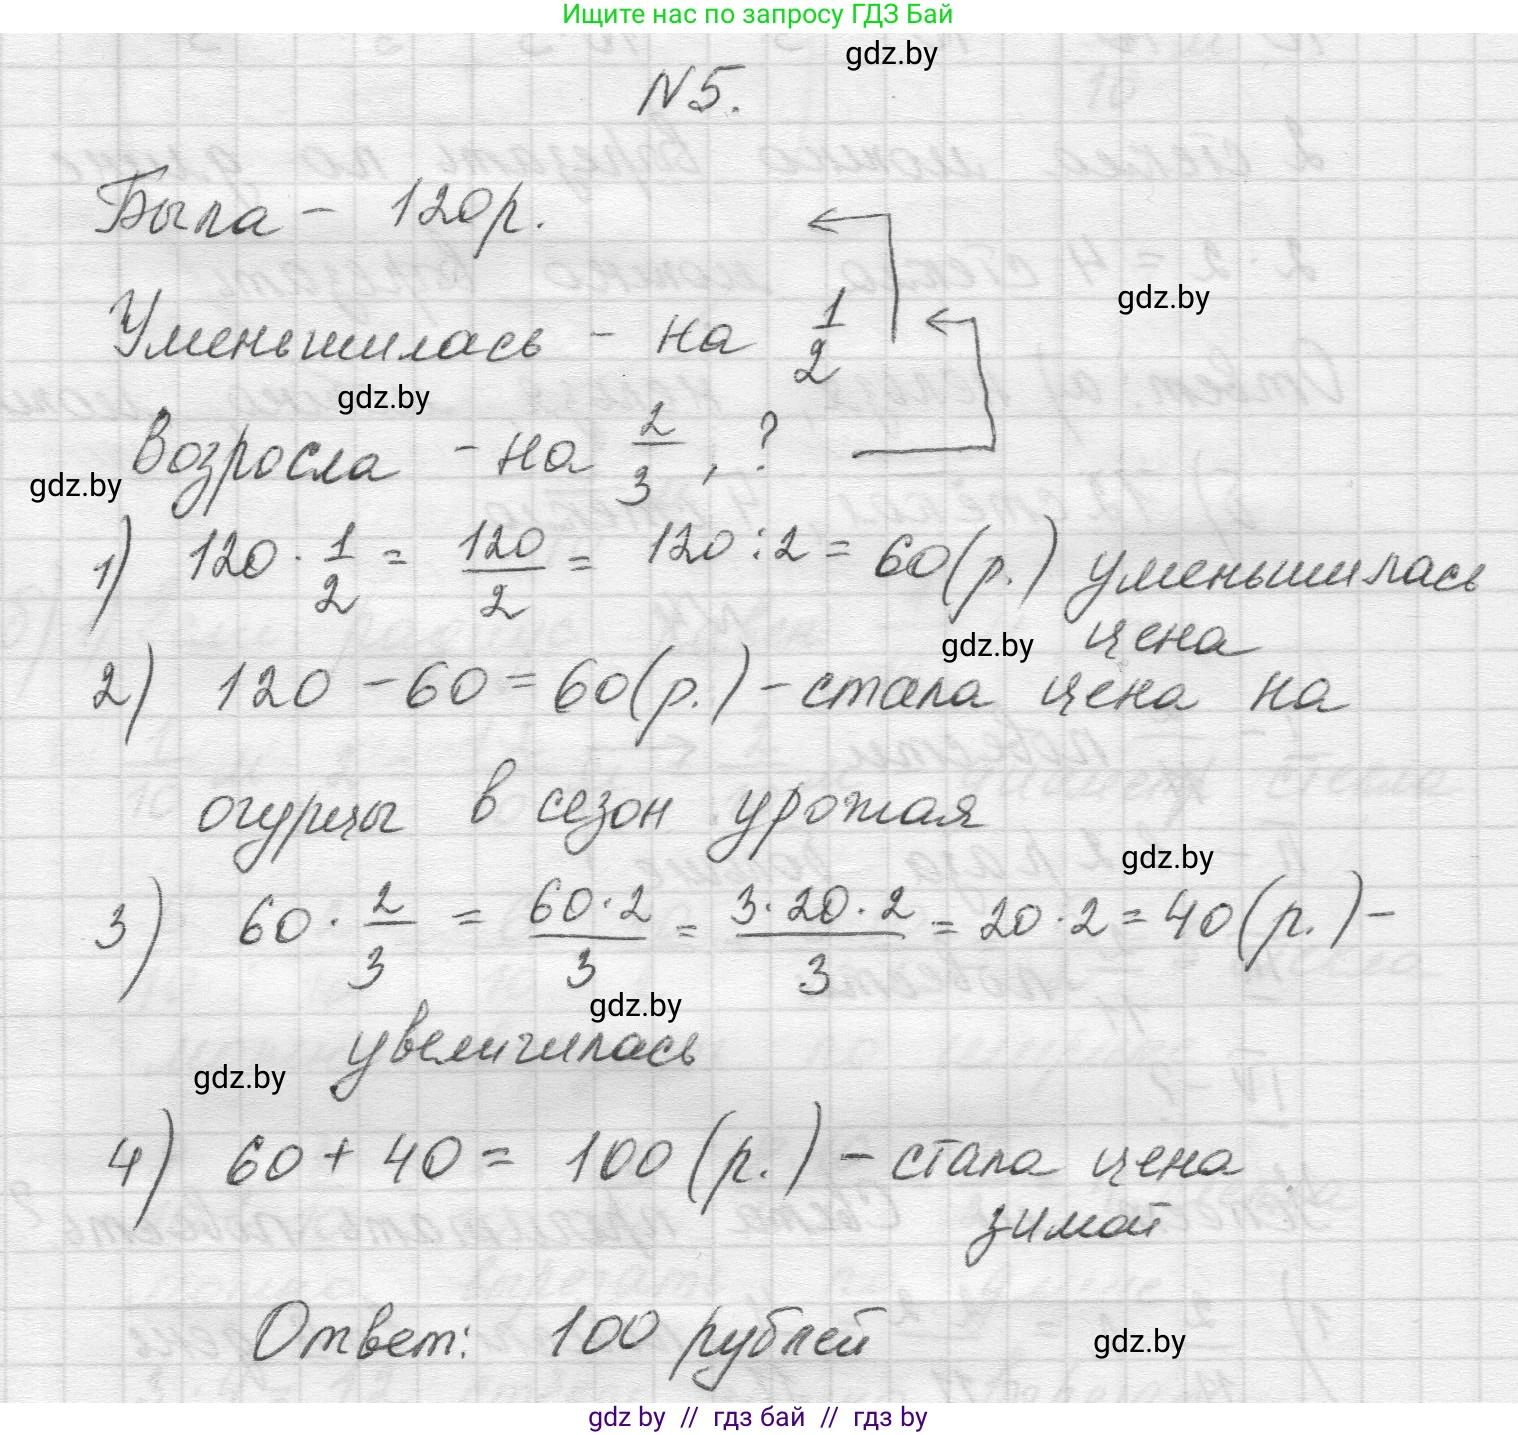 Ищите нас по запросу ГДЗ Бай
gdz.by
N5.
Была - 120р.
gdz.by
Уменьшилась - на 1/2
gdz.by
Возросла - на 2/3, ?
gdz.by
1) 120 · 1/2 = 120/2 = 120 : 2 = 60 (р.) уменьшилась
цена
gdz.by
2) 120 - 60 = 60 (р.) - стала цена на
огурцы в сезон урожая
gdz.by
3) 60 · 2/3 = 60·2/3 = 3·20·2/3 = 20·2 = 40 (р.) -
gdz.by
увеличилась
gdz.by
4) 60 + 40 = 100 (р.) - стала цена
зимой
Ответ: 100 рублей
gdz.by
gdz by // гдз бай // гдз by